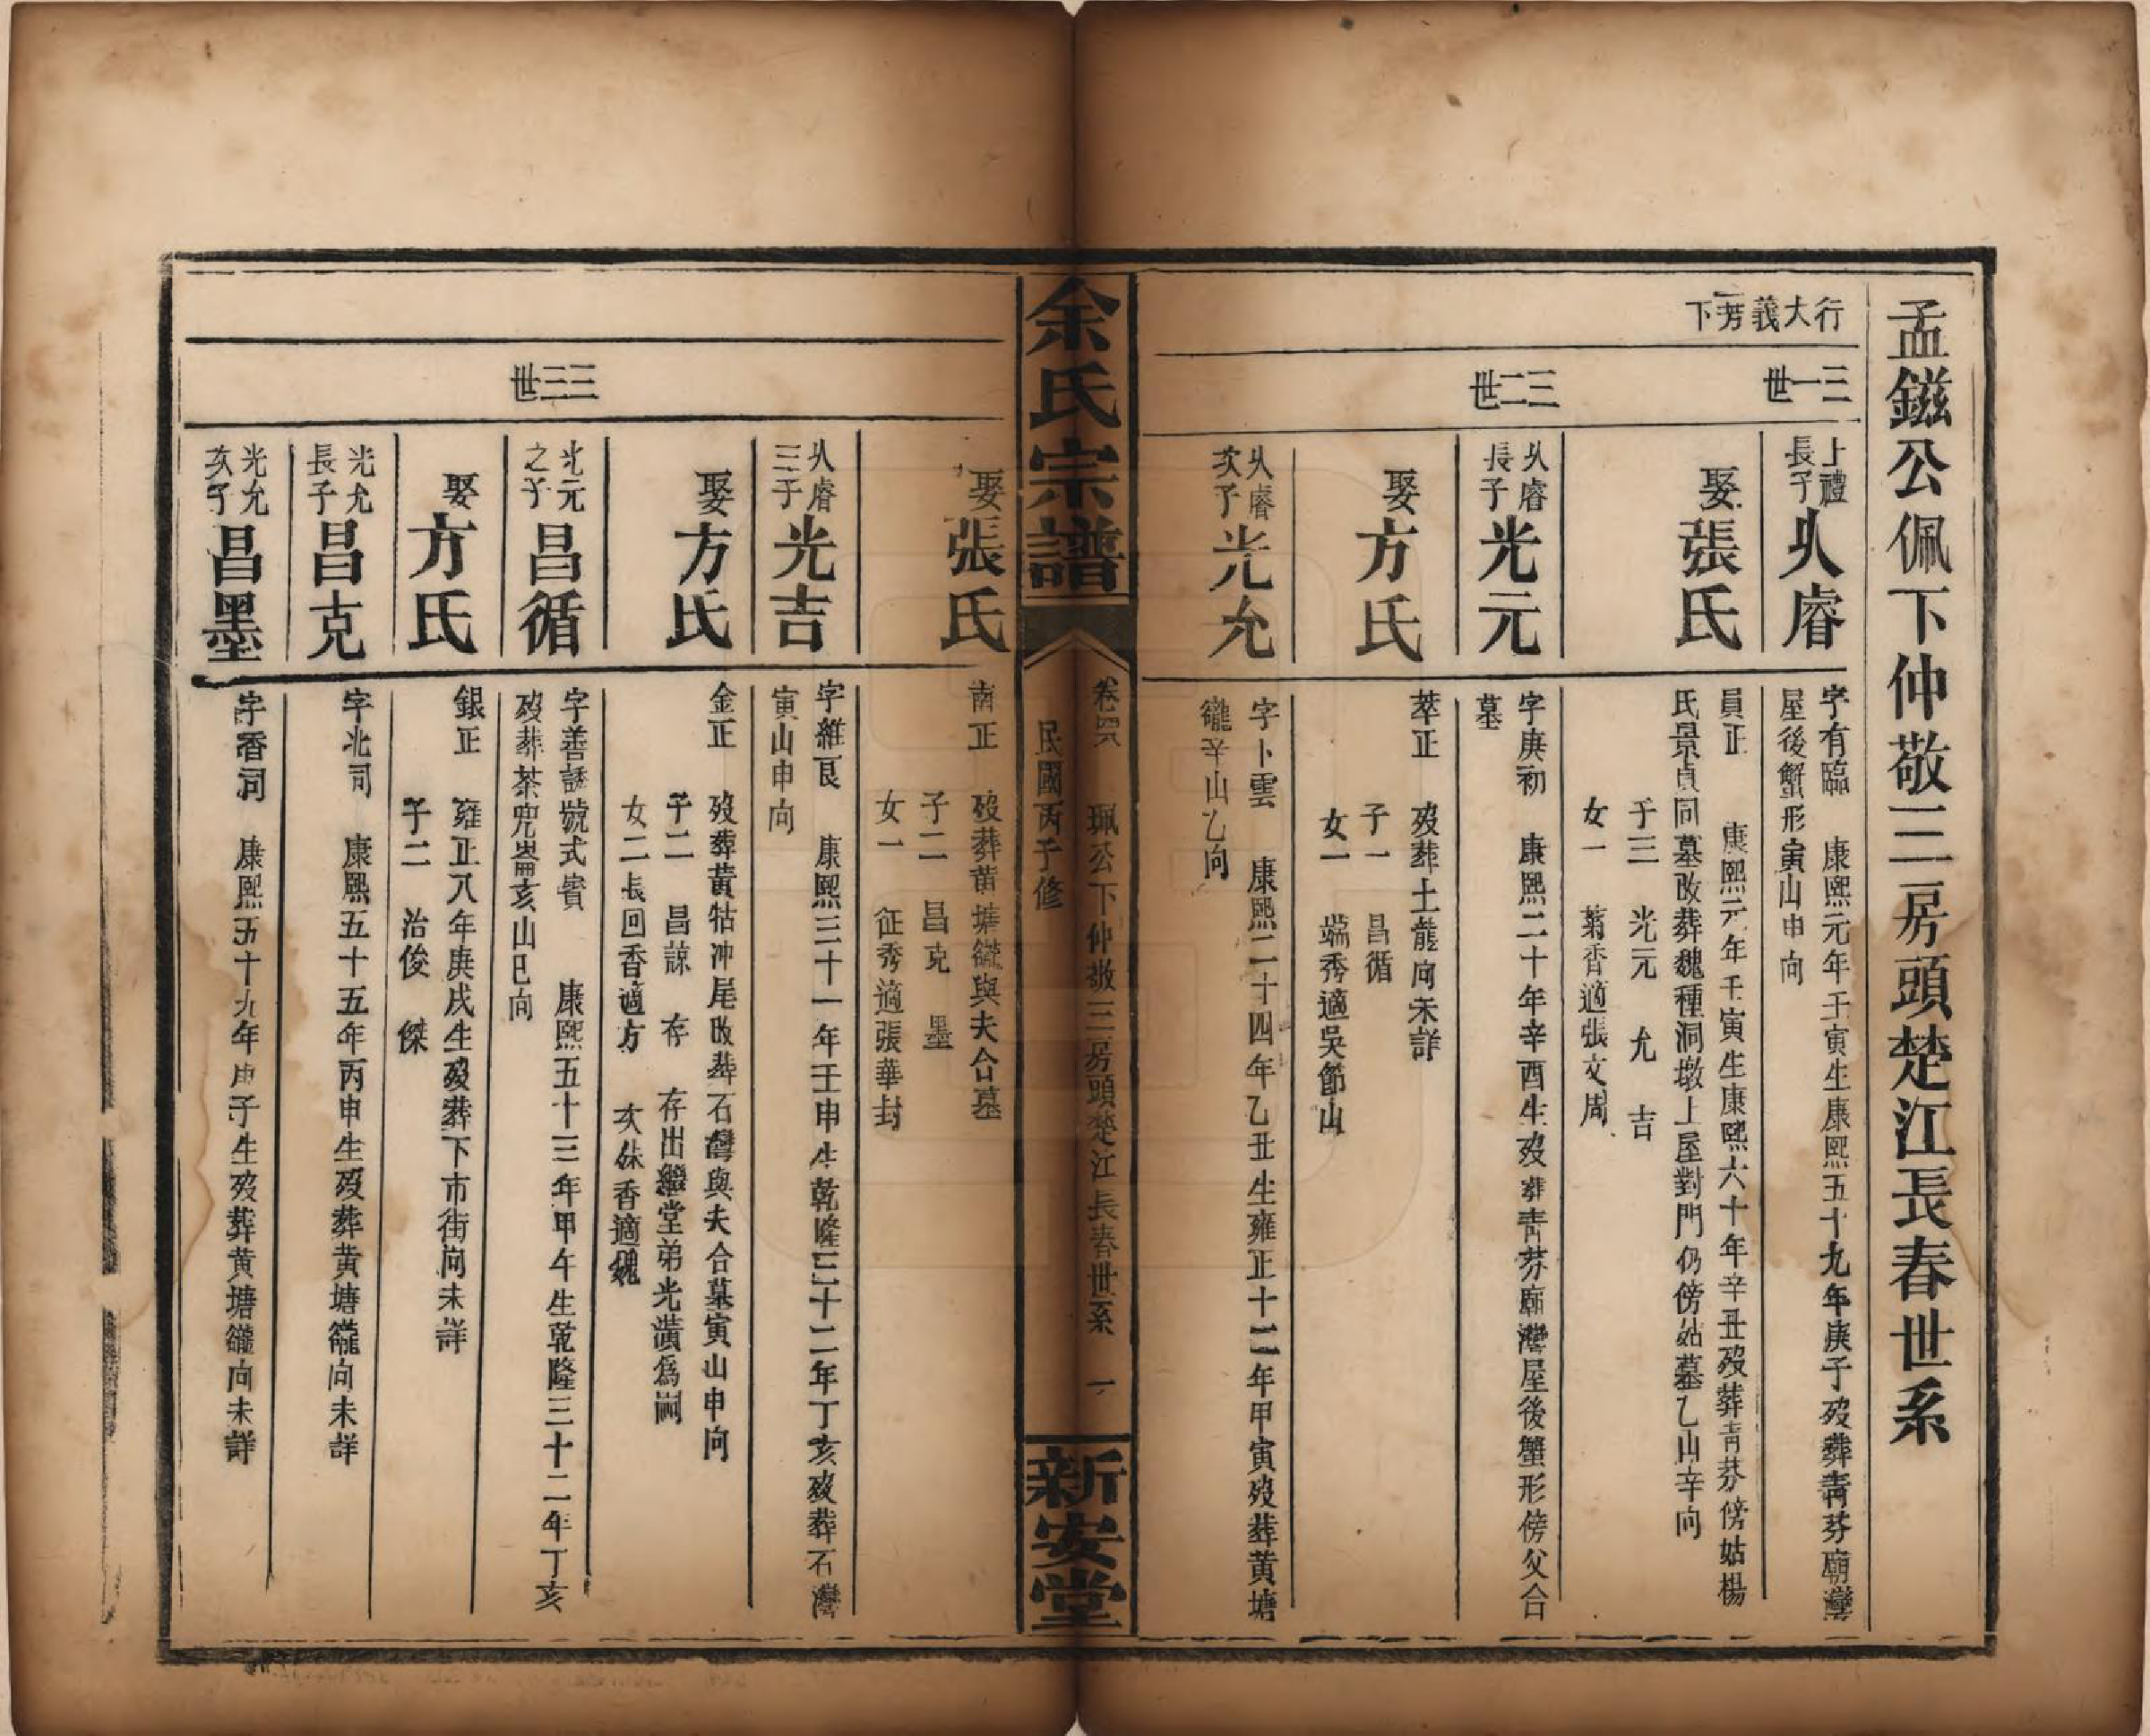 孟鎡公佩下仲敬三房頭楚江長春世系
行大義芳下
三一世
上禮長子 从睿
字有臨 康熙元年壬寅生康熙五十九年庚子歿葬靑芬廟灣
屋後蟹形寅山申向
娶張氏
員正 康熙元年壬寅生康熙六十年辛丑歿葬靑芬傍姑楊
氏景貞同墓改葬魏種洞墩上屋對門仍傍姑墓乙山辛向
子三 光元 允 吉
女一 菊香適張文周
三二世
从睿長子 光元
字庚初 康熙二十年辛酉生歿葬靑芬廟灣屋後蟹形傍父合
墓
娶方氏
萃正 歿葬土龍向未詳
子一 昌循
女一 端秀適吳節山
从睿次子 光允
字卜雲 康熙二十四年乙丑生雍正十二年甲寅歿葬黃塘
龓辛山乙向
余氏宗譜
卷 珮公下仲敬三房頭楚江長春世系 一
民國丙子修
新安堂
娶張氏
南正 歿葬黃塘龓與夫合墓
子二 昌克 墨
女一 征秀適張華封
从睿三子 光吉
字維艮 康熙三十一年壬申生乾隆三十二年丁亥歿葬石灣
寅山申向
娶方氏
金正 歿葬黃牯冲尾改葬石灣與夫合墓寅山申向
子二 昌諒 存 存出繼堂弟光潢爲嗣
女二長回香適方 次妹香適魏
三三世
光元之子 昌循
字善誘號式賓 康熙五十三年甲午生乾隆三十二年丁亥
歿葬茶兜崙亥山巳向
娶方氏
銀正 雍正八年庚戌生歿葬下市街向未詳
子二 治俊 傑
光允長子 昌克
字北司 康熙五十五年丙申生歿葬黃塘龓向未詳
光允次子 昌墨
字香祠 康熙五十九年庚子生歿葬黃塘龓向未詳